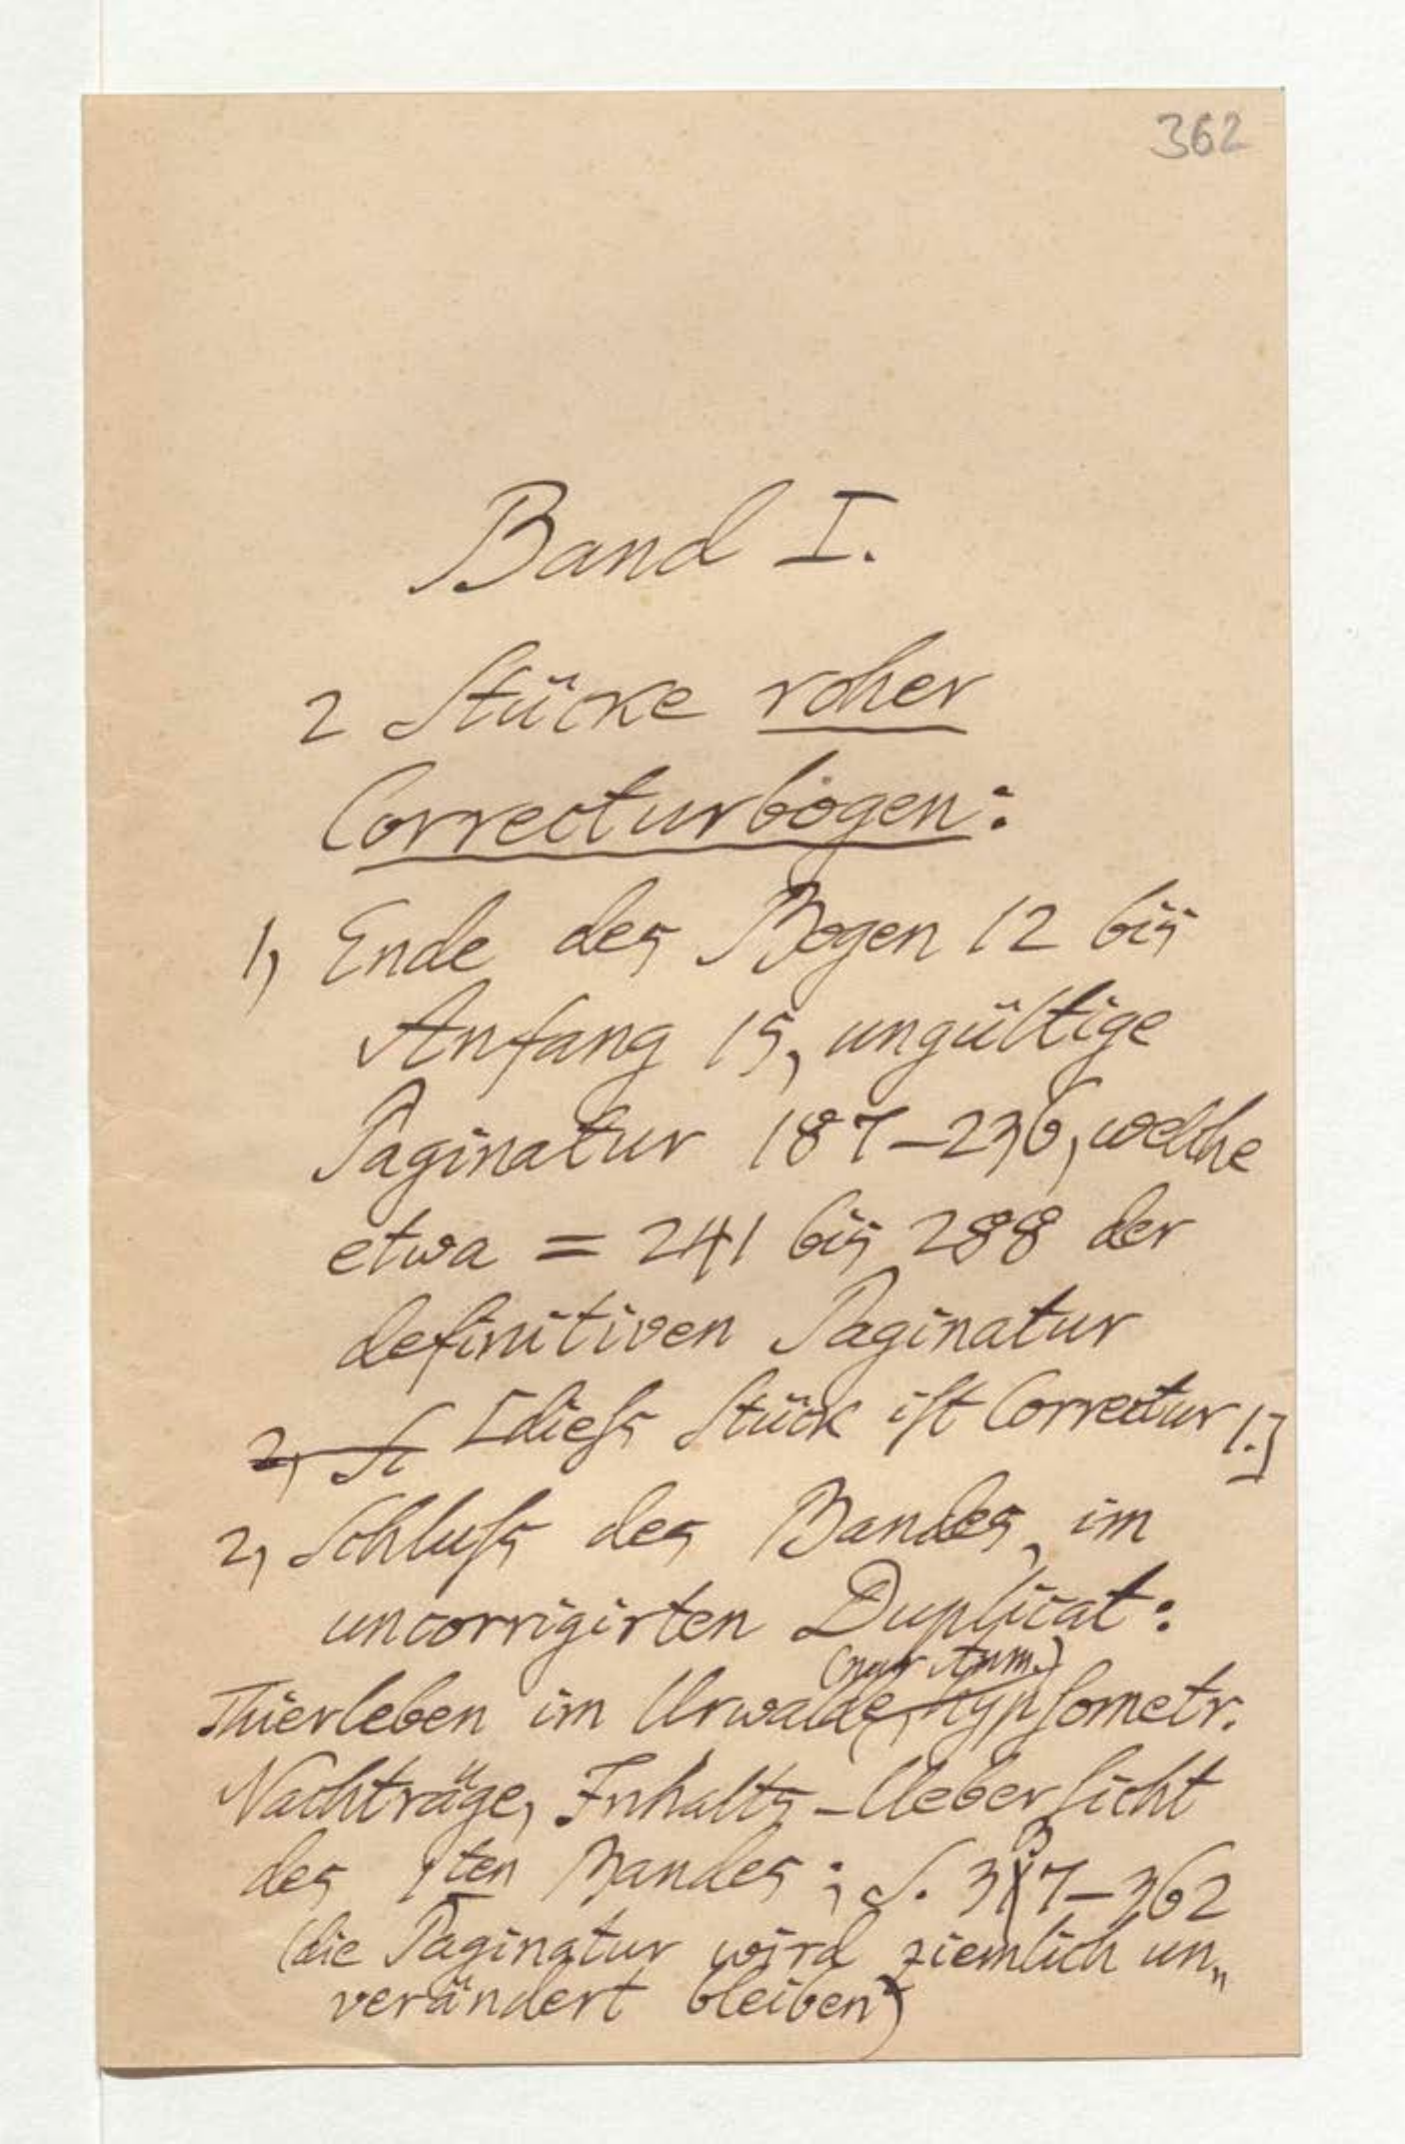 362
Band I.
2 Stücke roher
Correcturbögen:
1, Ende des Bogen 12 bis
Anfang 15, ungültige
Paginatur 187–236, welche
etwa = 241 bis 288 der
definitiven Paginatur
2, St [dieß Stück ist Correctur 1.]
2, Schluß des Bandes, im
uncorrigirten Duplicat:
(nur Anm.)
Thierleben im Urwalde, hypsometr.
Nachträge, Inhalts-Uebersicht
des 1ten Bandes; S. 337–362
(die Paginatur wird ziemlich un„
verändert bleiben)